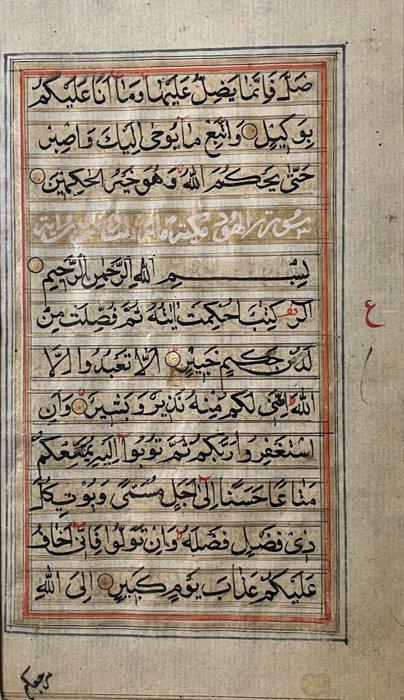 ضَلَّ فَاِنَّمَا يَضِلُّ عَلَيْهَا وَمَا اَنَا عَلَيْكُمْ
بِوَكِيْلٍ وَاتَّبِعْ مَا يُوْحٰى اِلَيْكَ وَاصْبِرْ
حَتّٰى يَحْكُمَ اللّٰهُ وَهُوَ خَيْرُ الْحٰكِمِيْنَ
سورة هود مكية
بِسْمِ اللّٰهِ الرَّحْمٰنِ الرَّحِيْمِ
الٓرٰ كِتٰبٌ اُحْكِمَتْ اٰيٰتُهٗ ثُمَّ فُصِّلَتْ مِنْ
لَّدُنْ حَكِيْمٍ خَبِيْرٍ اَلَّا تَعْبُدُوْا اِلَّا
اللّٰهَ اِنَّنِيْ لَكُمْ مِنْهُ نَذِيْرٌ وَبَشِيْرٌ وَاَنِ
اسْتَغْفِرُوْا رَبَّكُمْ ثُمَّ تُوْبُوْا اِلَيْهِ يُمَتِّعْكُمْ
مَتَاعًا حَسَنًا اِلٰى اَجَلٍ مُسَمًّى وَيُؤْتِ كُلَّ
ذِيْ فَضْلٍ فَضْلَهٗ وَاِنْ تَوَلَّوْا فَاِنِّيْ اَخَافُ
عَلَيْكُمْ عَذَابَ يَوْمٍ كَبِيْرٍ اِلَى اللّٰهِ
ع
مرجعكم